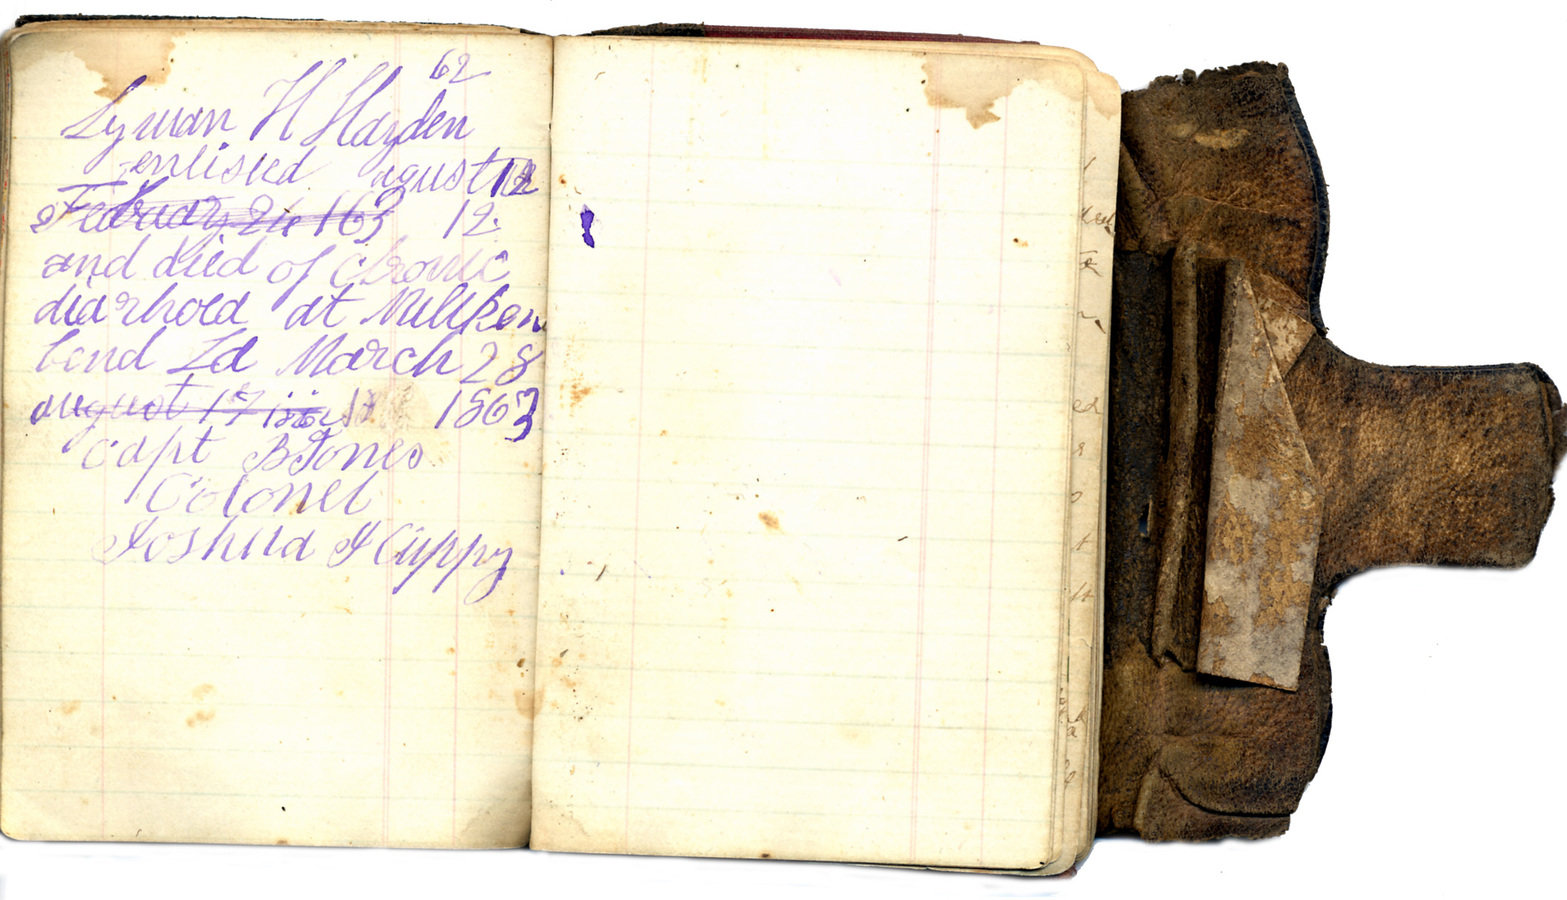 62
Lyman H Hayden
enlisted agust 12
February 24 163 12
and died of Chronic
diarhoea at Millken
bend La March 28
august 17 1863
Capt B Jones
Colonel
Joshua J Cuppy